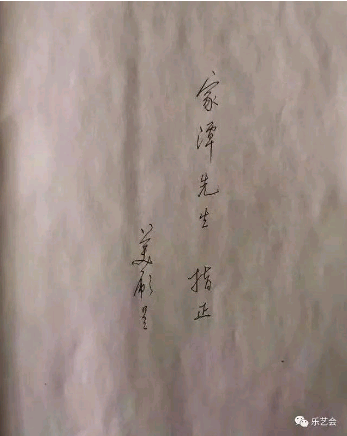 家潭先生 指正
美厖呈
乐艺会